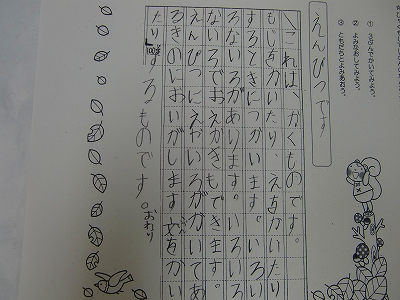 ① 3ぶんでかいてみよう。
② よみなおしてみよう。
③ ともだちとよみあおう。
えんぴつです
これは、かくものです。
もじをかいたり、えをかいたり
するときにつかいます。いろい
ろないろがあります。いろいろ
ないろでおえかきもできます。
えんぴつにえがいろがかいてあ
ろきのにおいがします文をかい
たりするものです。おわり
100字